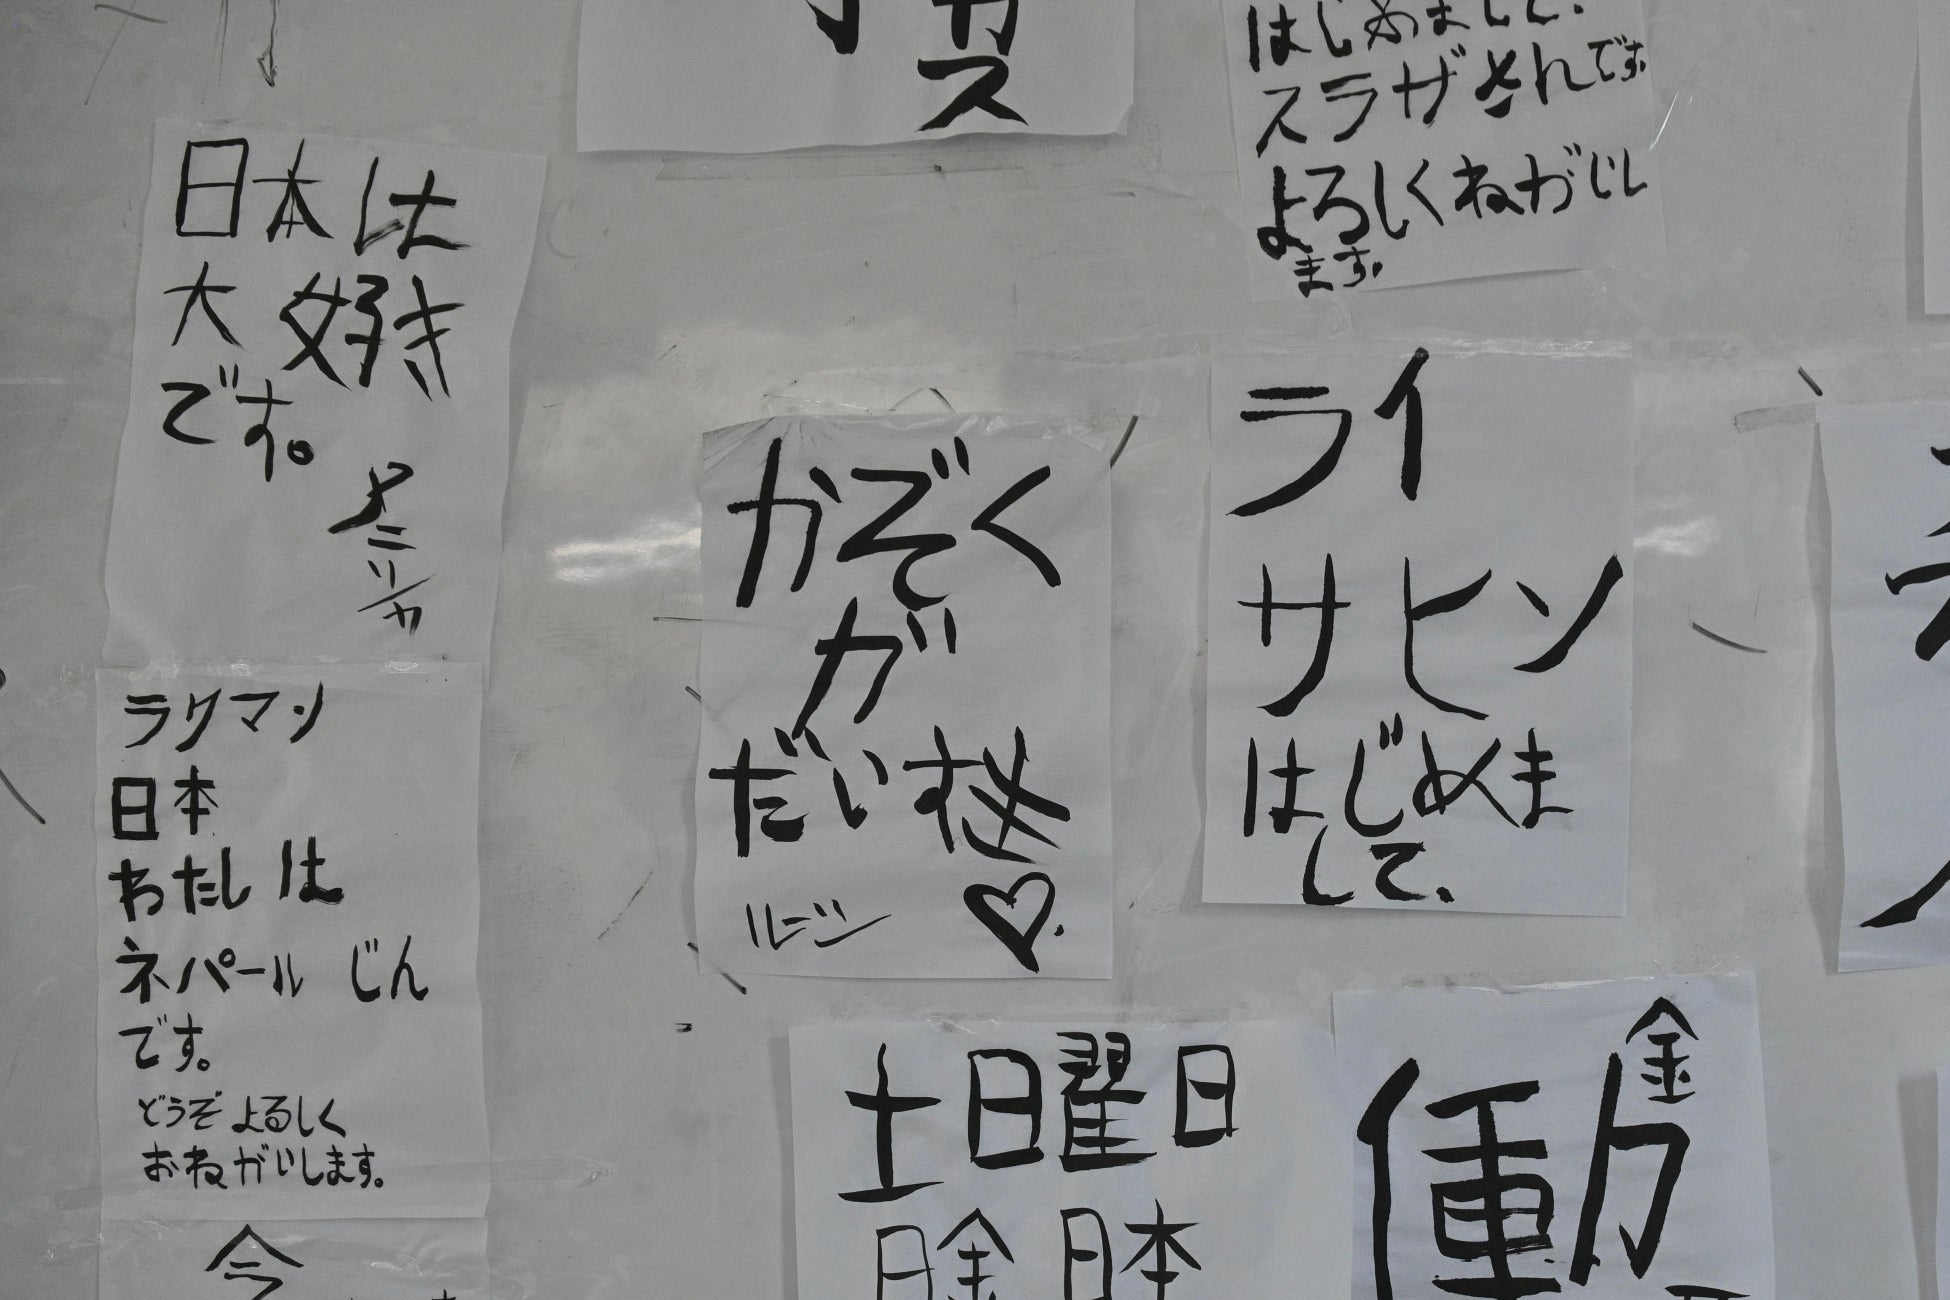 カ
ス
はじめまして.
スラザさんです.
よろしくねがいし
ます.
日本は
大好き
です。
ラクマン
日本
わたし は
ネパール じん
です。
どうぞ よろしく
おねがいします。
今
かぞく
が
だいすき
ルージン
ライ
サビン
はじめま
して.
土日曜日
日金 日本
金
働